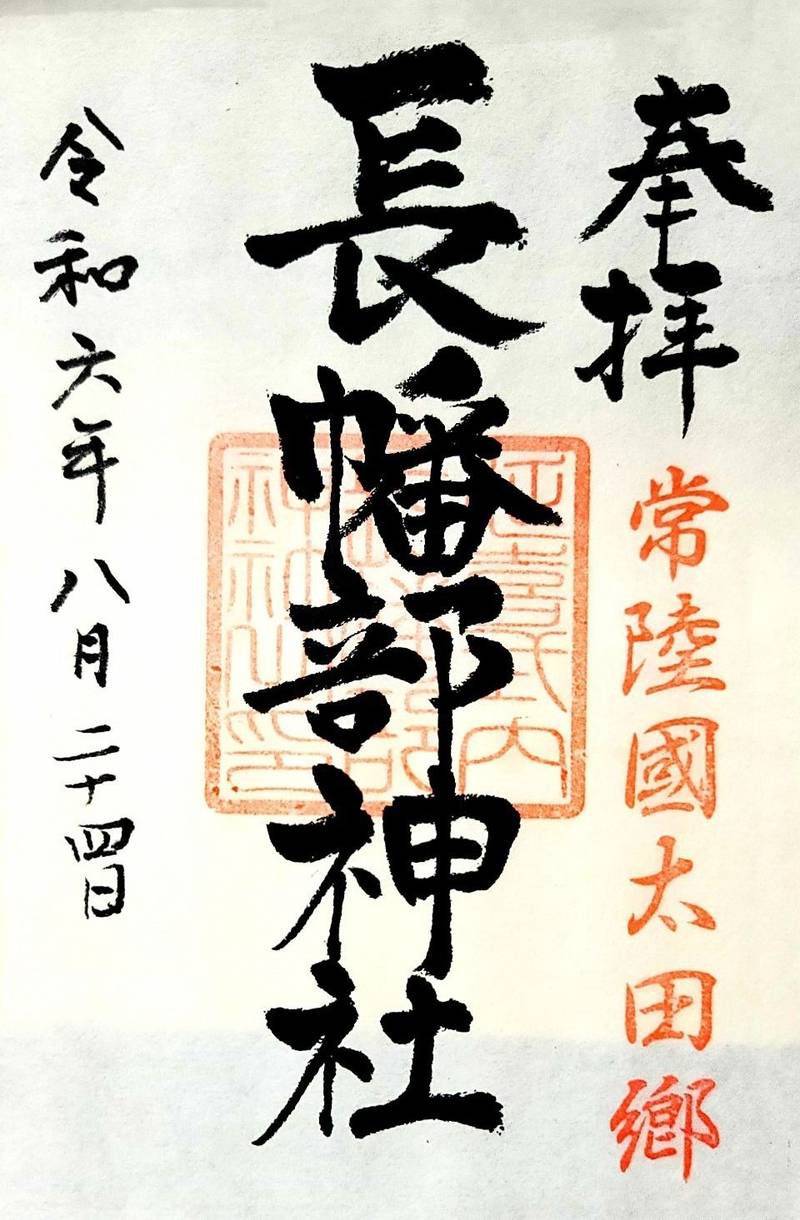 奉拝
常陸國太田郷
長幡部神社
延喜式内
長幡部
神社之印
令和六年八月二十四日